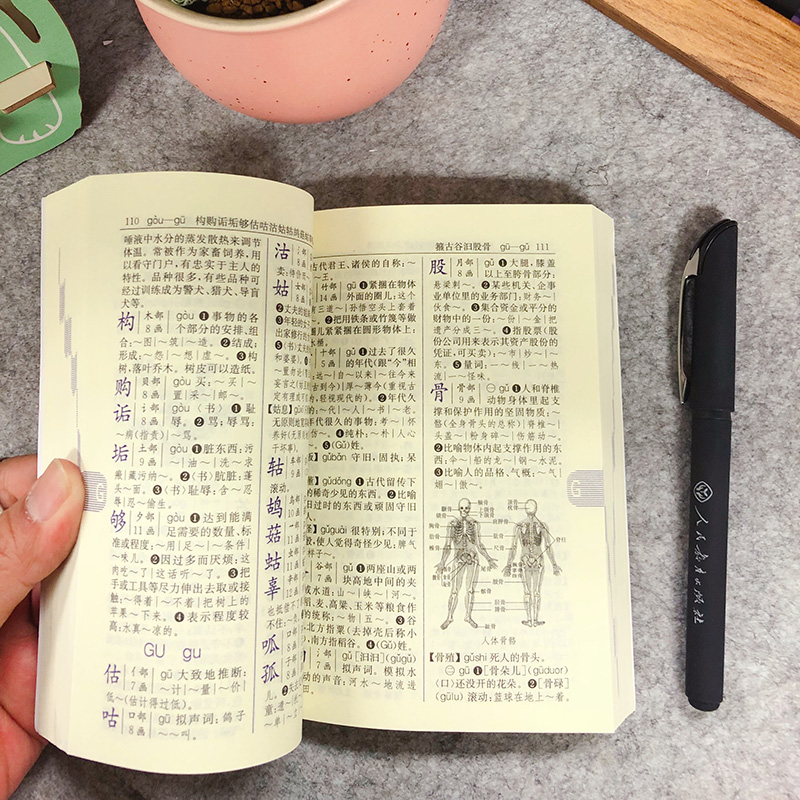 110 gòu—gū 构购诟垢够估咕沽姑
唾液中水分的蒸发散热来调节
体温。常被作为家畜饲养,用
以看守门户,有忠实于主人的
特性。品种很多,有些品种可
经过训练成为警犬、猎犬、导盲
犬等。
构 木部 8画 gòu ❶事物的各
个部分的安排、组
合:~图|~筑|~造。❷结成;
形成:~怨|~想|虚~。❸构
树,落叶乔木。树皮可以造纸。
购 贝部 8画 gòu 买:~买|~
置|采~|邮~。
诟 讠部 8画 gòu〈书〉❶耻
辱。❷辱骂;骂:
~病(指责)|~骂。
垢 土部 9画 gòu ❶脏东西:污
~|油~|洗~求
瘢|藏污纳~。❷〈书〉肮脏:蓬
头~面。❸〈书〉耻辱:含~忍
辱|忍~偷生。
够 夕部 11画 gòu ❶达到能满
足需要的数量、标
准或程度:~用|足~|~条件|
~味儿。❷因过多而厌烦:这
肉吃~了|这话听~了。❸把
手或工具等尽力伸出去取或接
触:~得着|~不着|把树上的
苹果~下来。❹表示程度较
高:水真~凉的。
GU gu
估 亻部 7画 gū 大致地推断:
~计|~量|~价|
低~(估计得过低)。
咕 口部 8画 gū 拟声词:鸽子
~~叫。
沽
姑
【姑息】
轱
滚动。
鸪
菇
蛄
辜
呱
孤
G
箍古谷汩股骨 gū—gǔ 111
古代君王、诸侯的自称:~
~王。
竹部 14画 gū ❶紧紧套在
外面的圈儿:这个
有三道~|孙悟空头上套着
❷把用铁条或竹篾等做
圈儿紧紧捆在圆形物体上:
水桶。
十部 5画 gǔ ❶过去了很久
的年代(跟“今”相
远~|自~以来|~往今来
古到今)|厚~薄今(重视古
的,轻视现代的)。❷年代久
~代|~人|~书|~老。
年代很久的事物:考~|怀
仿~。❹纯朴:~朴|人心
~。❺(Gǔ)姓。
gǔbǎn 守旧,固执;呆
gǔdǒng ❶古代留传下
的稀奇少见的东西。❷比喻
旧过时的东西或顽固守旧
人。
gǔguài 很特别,不同于
般,使人觉得奇怪少见:脾气
样子~。
谷部 7画 gǔ ❶两座山或两
块高地中间的夹
或水道:山~|峡~|河~。
稻、麦、高粱、玉米等粮食作
的统称:~物|五~。❸谷
北方指粟(去掉壳后称小
,南方指稻谷。❹(Gǔ)姓。
氵部 7画 gǔ [汩汩](gǔgǔ)
拟声词。模拟水
动的声音:河水~地流进
田。
股 月部 8画 gǔ ❶大腿,膝盖
以上至胯骨部分:
悬梁刺~。❷某些机关、企事
业单位里的业务部门:财务~|
伙食~。❸集合资金或平分的
财物中的一份:~份|~金|把
遗产分成三~。❹指股票(股
份公司用来表示其资产股份的
凭证,可买卖):~市|炒~|~
东。❺量词:一~线|一~热
流|一~怪味。
骨 骨部 9画 ㊀ gǔ ❶人和脊椎
动物身体里起支
撑和保护作用的坚固物质:~
骼(全身骨头的总称)|脊椎~|
头盖~|粉身碎~|伤筋动~。
❷比喻物体内起支撑作用的东
西:伞~|船的龙~|钢~水泥。
❸比喻人的品格、气概:~气|
媚~|傲~。
人体骨骼
【骨殖】gǔshi 死人的骨头。
㊁ gū ❶[骨朵儿](gūduor)
〈口〉还没开的花朵。❷[骨碌]
(gūlu)滚动:篮球在地上~着。
G
人民教育出版社